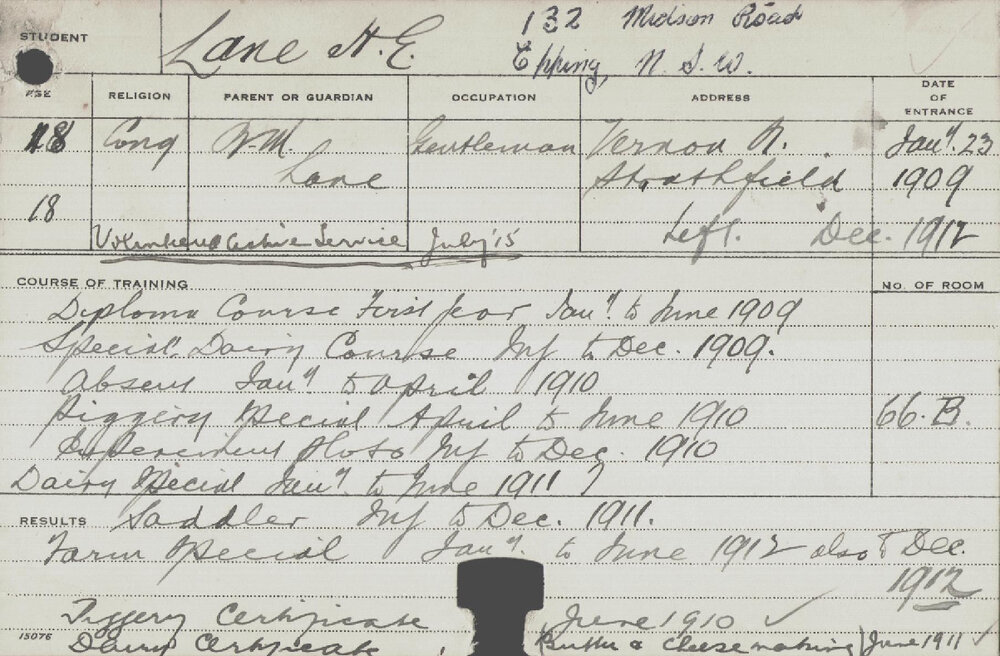 STUDENT Lane H. E. 132 Midson Road
Epping, N. S. W.
RELIGION PARENT OR GUARDIAN OCCUPATION ADDRESS DATE OF ENTRANCE
18 Cong Wm Gentleman Vernon St. Jany. 23
Lane Strathfield 1909
18 Left. Dec. 1912
Volunteered Active Service July '15
COURSE OF TRAINING No. OF ROOM
Diploma Course First Year Jany. to June 1909
Special Dairy Course July to Dec. 1909.
Absent Jany to April 1910
Piggery Special April to June 1910 66.B.
Experiment Plots July to Dec. 1910
Dairy Special Jany. to June 1911
RESULTS Saddler July to Dec. 1911.
Farm Special Jany. to June 1912 also to Dec.
1912
Piggery Certificate June 1910 ✓
15076 Dairy Certificate (Butter & Cheesemaking) June 1911 ✓